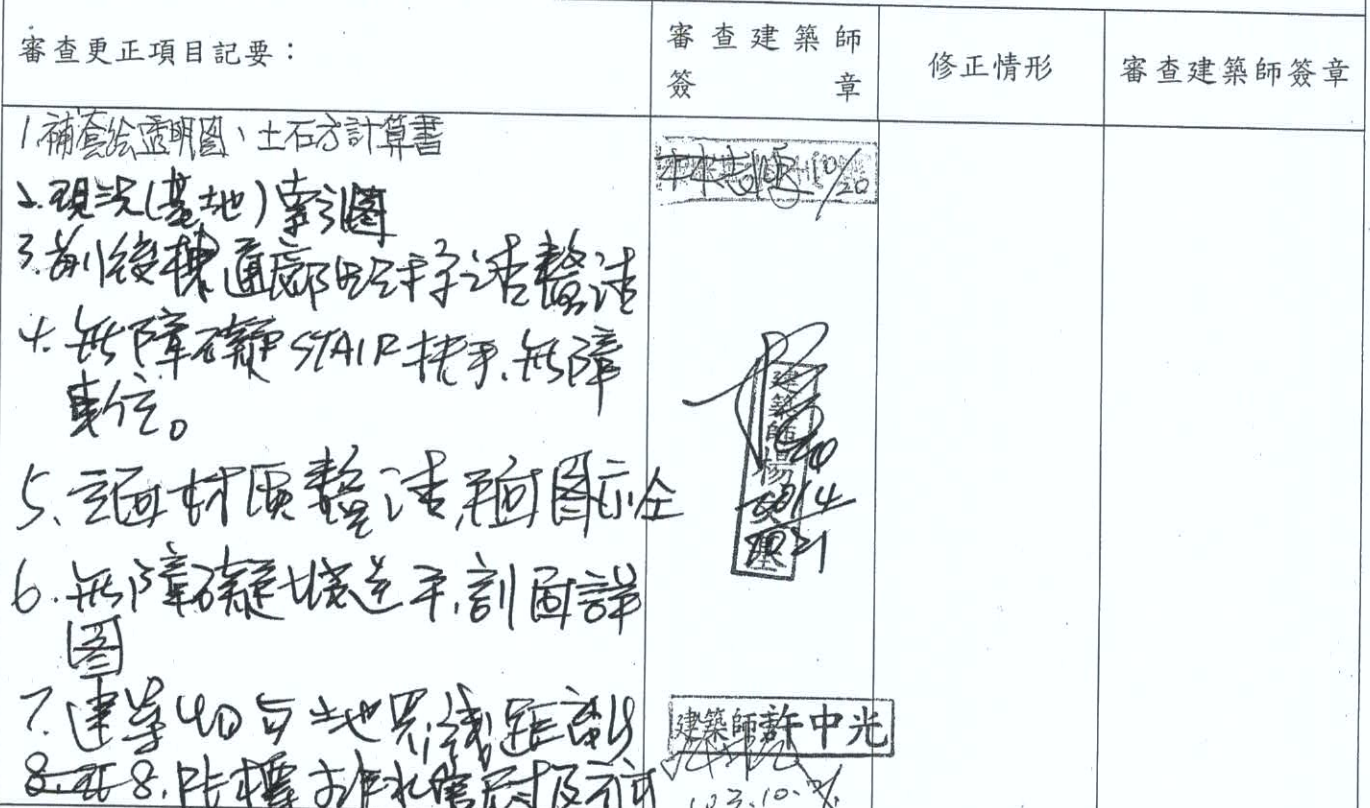 審查更正項目記要：
審查建築師
簽章
修正情形
審查建築師簽章
1.補套繪透明圖、土石方計算書
10/20
2.現況(基地)索引圖
3.前後棟通廊 請釐清
4.無障礙STAIR扶手、無障
車位。
5、立面材質釐清,剖面圖示全
6.無障礙坡道平、剖面詳
圖
建築師楊
7.建築物与土地界線距離
8. 8.陽檯排水管
建築師許中光
103.10.21